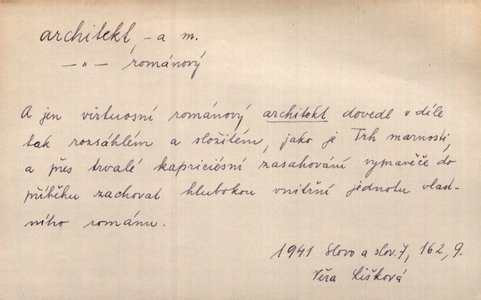 architekt, -a m.
— „ — románový
A jen virtuosní románový architekt dovedl v díle
tak rozsáhlém a složitém, jako je Trh marnosti
a přes trvalé kapriciésní zasahování vypravěče do
příběhu zachovat hlubokou vnitřní jednotu vlast-
ního románu.
1941 Slovo a slov. 7, 162, 9.
Věra Lišková